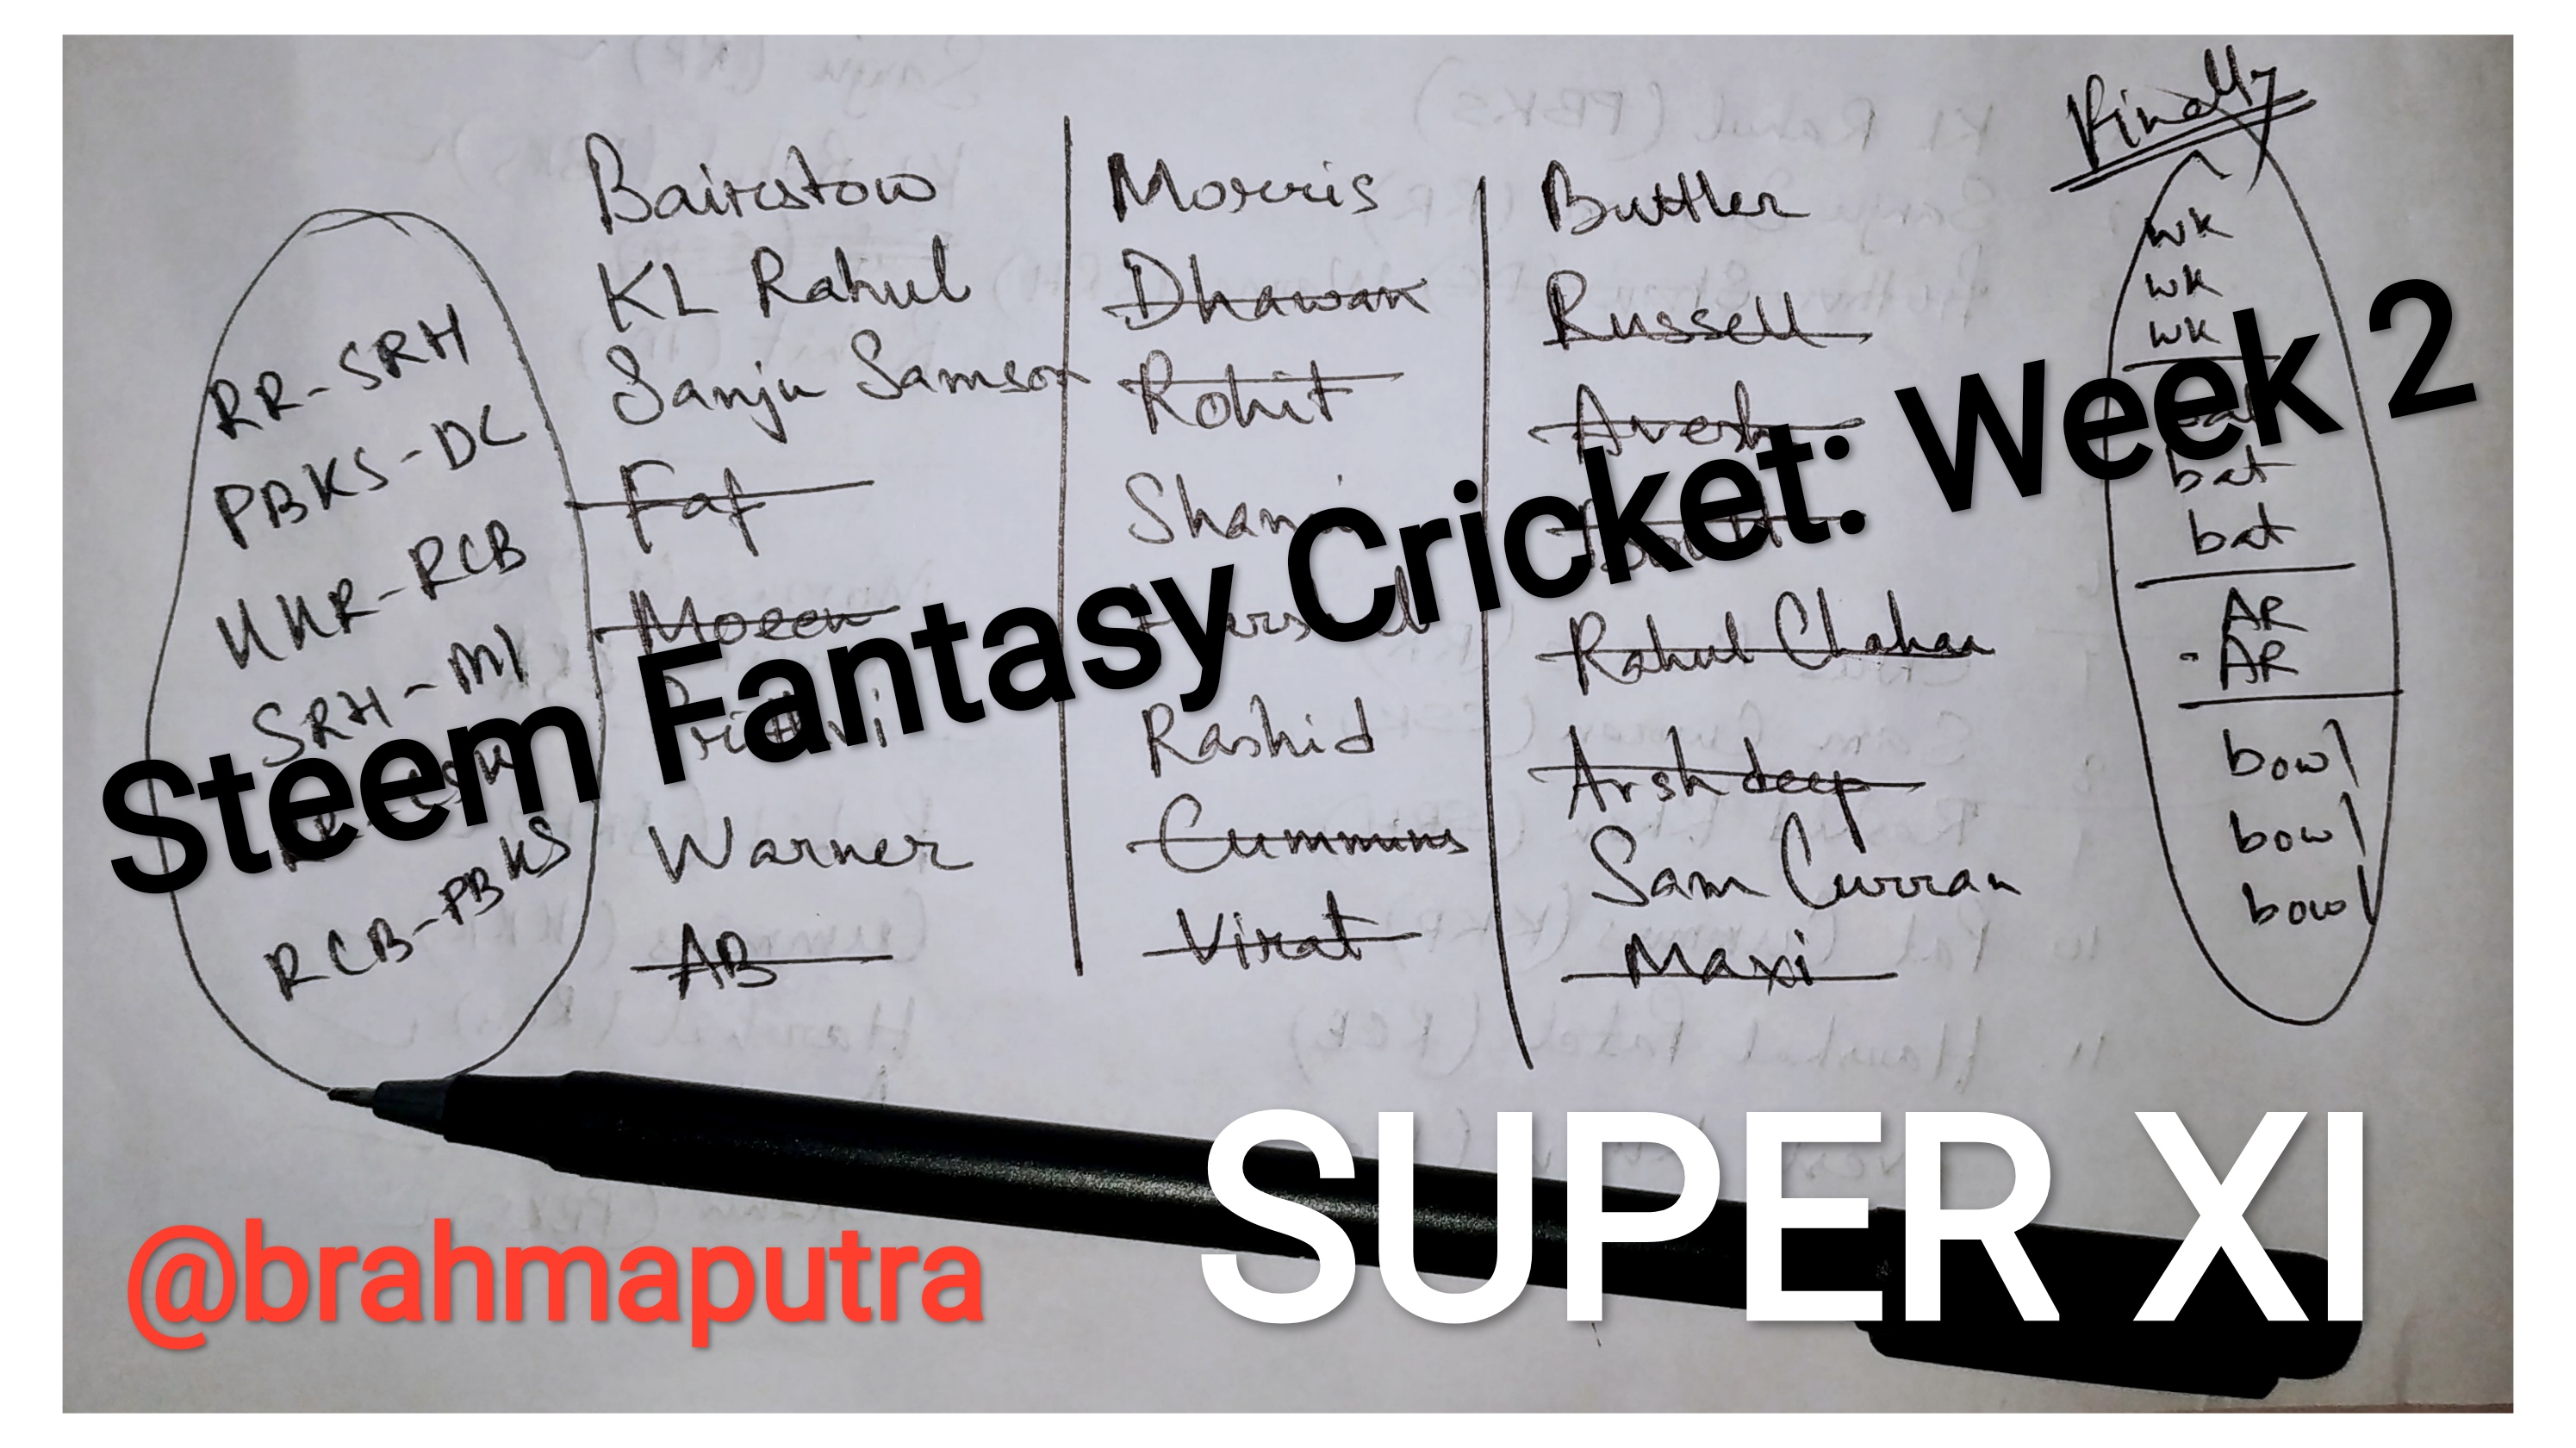 Finally
RR-SRH
PBKS-DC
KKR-RCB
SRH-MI
RCB-PBKS
Bairstow
KL Rahul
Sanju Samson
Faf
Moeen
Prithvi
Warner
AB
Morris
Dhawan
Rohit
Shami
Harshal
Rashid
Cummins
Virat
Buttler
Russell
Avesh
Rahul Chahar
Arshdeep
Sam Curran
Maxi
WK
WK
WK
bat
bat
bat
AR
AR
bowl
bowl
bowl
Steem Fantasy Cricket: Week 2
SUPER XI
@brahmaputra